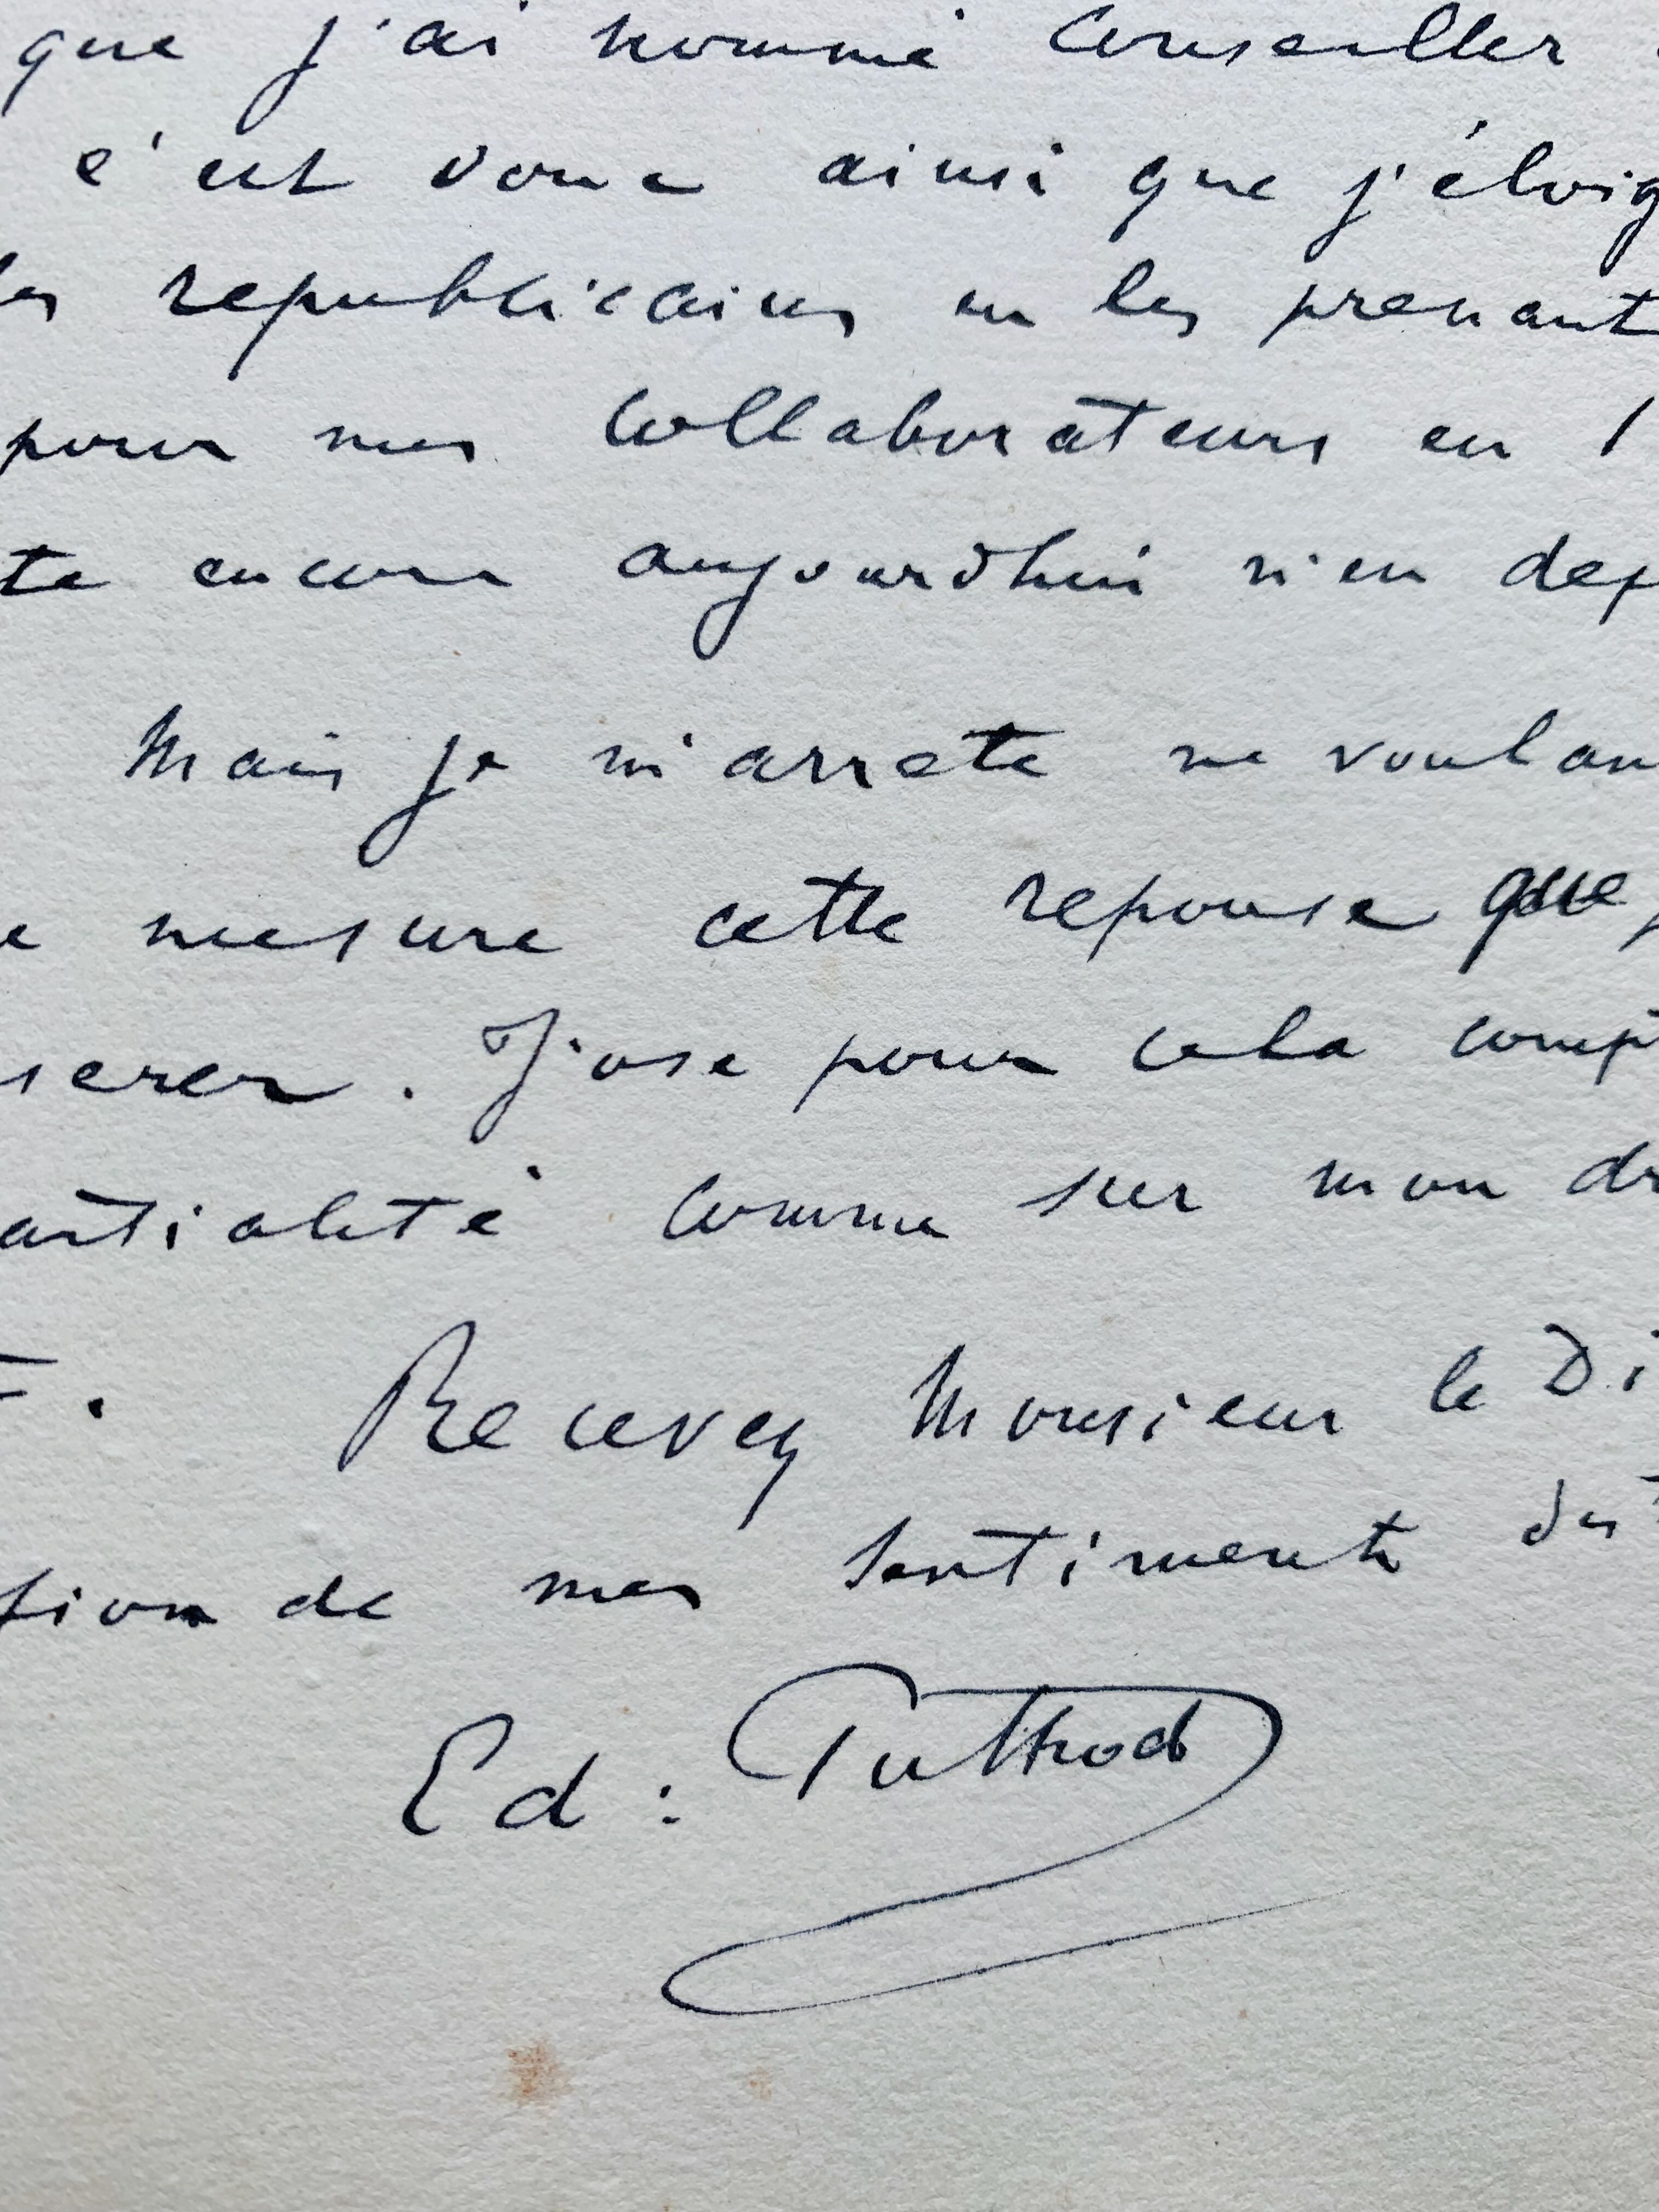 que j'ai nommé Conseiller
c'est donc ainsi que j'éloig
les republicains en les prenant
pour mes Collaborateurs en 1
te encore aujourdhui rien dep
Mais je m'arrete ne voulan
e mesure cette reponse que
serer. J'ose pour cela compt
artialité comme sur mon dr
. Recevez Monsieur le Di
sion de mes sentiments dist
Ed: